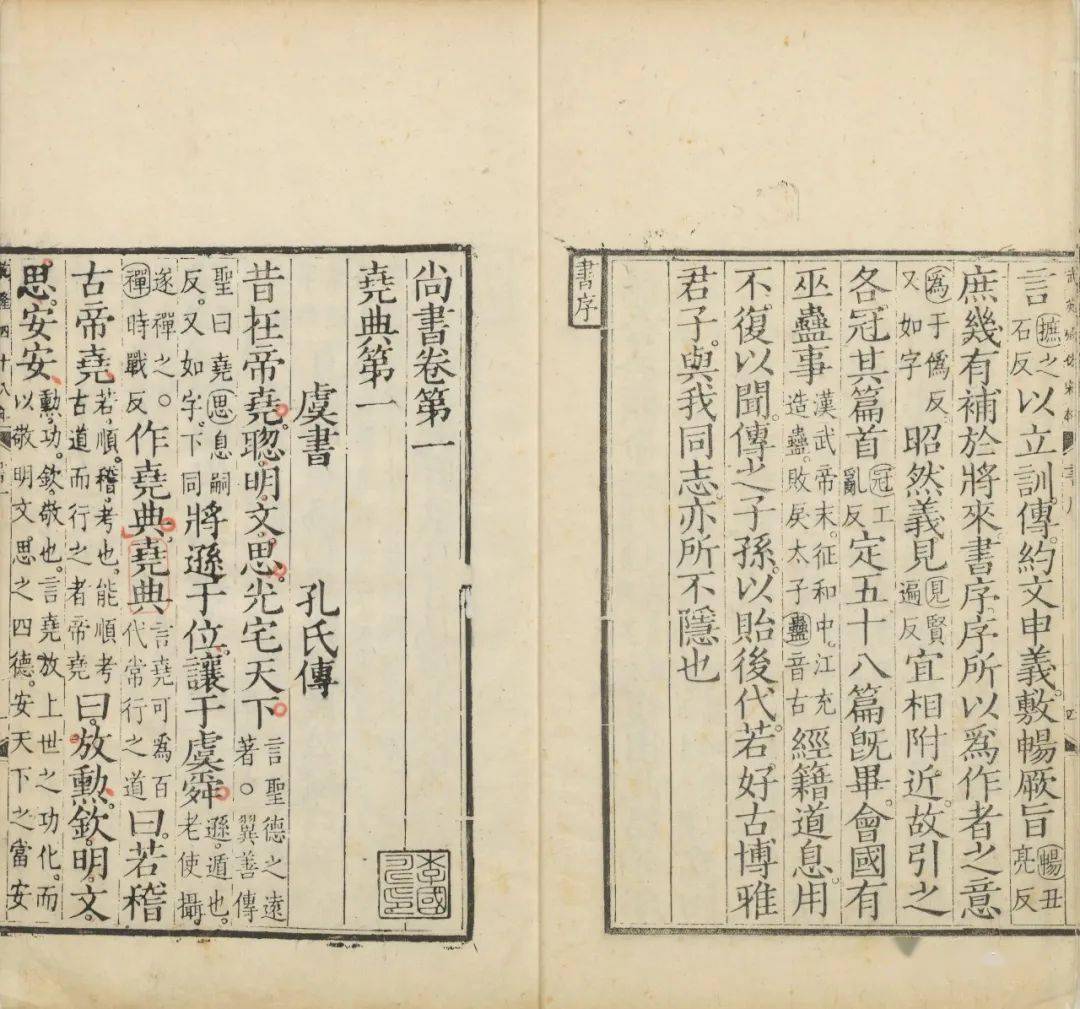 武英殿仿宋本
言摭之石反以立訓傳約文申義敷暢厥旨暢丑亮反
庶幾有補於將來書序序所以爲作者之意
爲于僞反又如字昭然義見見賢遍反宜相附近故引之
各冠其篇首冠工亂反定五十八篇旣畢會國有
巫蠱事漢武帝末征和中江充造蠱敗戾太子蠱音古經籍道息用
不復以聞傳之子孫以貽後代若好古博雅
君子與我同志亦所不隱也
書序
尚書卷第一
堯典第一
虞書 孔氏傳
昔在帝堯聰明文思光宅天下言聖德之遠著○翼善傳
聖曰堯思息嗣反又如字下同將遜于位讓于虞舜遜遁也老使攝
遂禪之○禪時戰反作堯典堯典言堯可爲百代常行之道曰若稽
古帝堯若順稽考也能順考古道而行之者帝堯曰放勲欽明文
思安安勲功欽敬也言堯放上世之功化而以敬明文思之四德安天下之當安
乾隆四十八年